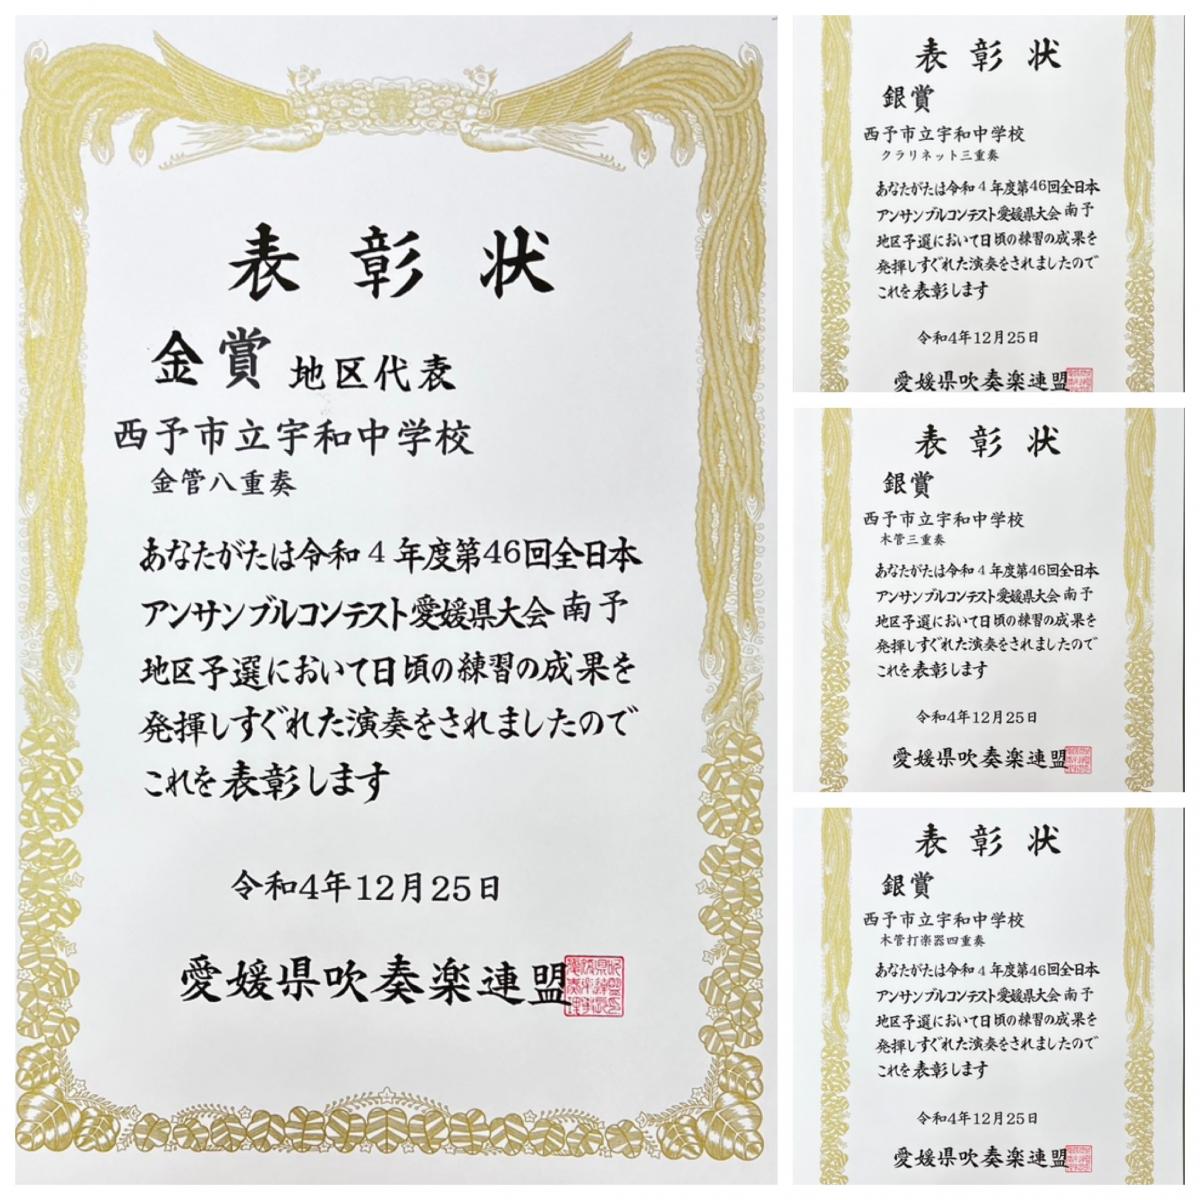 表彰状
金賞 地区代表
西予市立宇和中学校
金管八重奏
あなたがたは令和4年度第46回全日本
アンサンブルコンテスト愛媛県大会 南予
地区予選において日頃の練習の成果を
発揮しすぐれた演奏をされましたので
これを表彰します
令和4年12月25日
愛媛県吹奏楽連盟
表彰状
銀賞
西予市立宇和中学校
クラリネット三重奏
あなたがたは令和4年度第46回全日本
アンサンブルコンテスト愛媛県大会 南予
地区予選において日頃の練習の成果を
発揮しすぐれた演奏をされましたので
これを表彰します
令和4年12月25日
愛媛県吹奏楽連盟
表彰状
銀賞
西予市立宇和中学校
木管三重奏
あなたがたは令和4年度第46回全日本
アンサンブルコンテスト愛媛県大会 南予
地区予選において日頃の練習の成果を
発揮しすぐれた演奏をされましたので
これを表彰します
令和4年12月25日
愛媛県吹奏楽連盟
表彰状
銀賞
西予市立宇和中学校
木管打楽器四重奏
あなたがたは令和4年度第46回全日本
アンサンブルコンテスト愛媛県大会 南予
地区予選において日頃の練習の成果を
発揮しすぐれた演奏をされましたので
これを表彰します
令和4年12月25日
愛媛県吹奏楽連盟